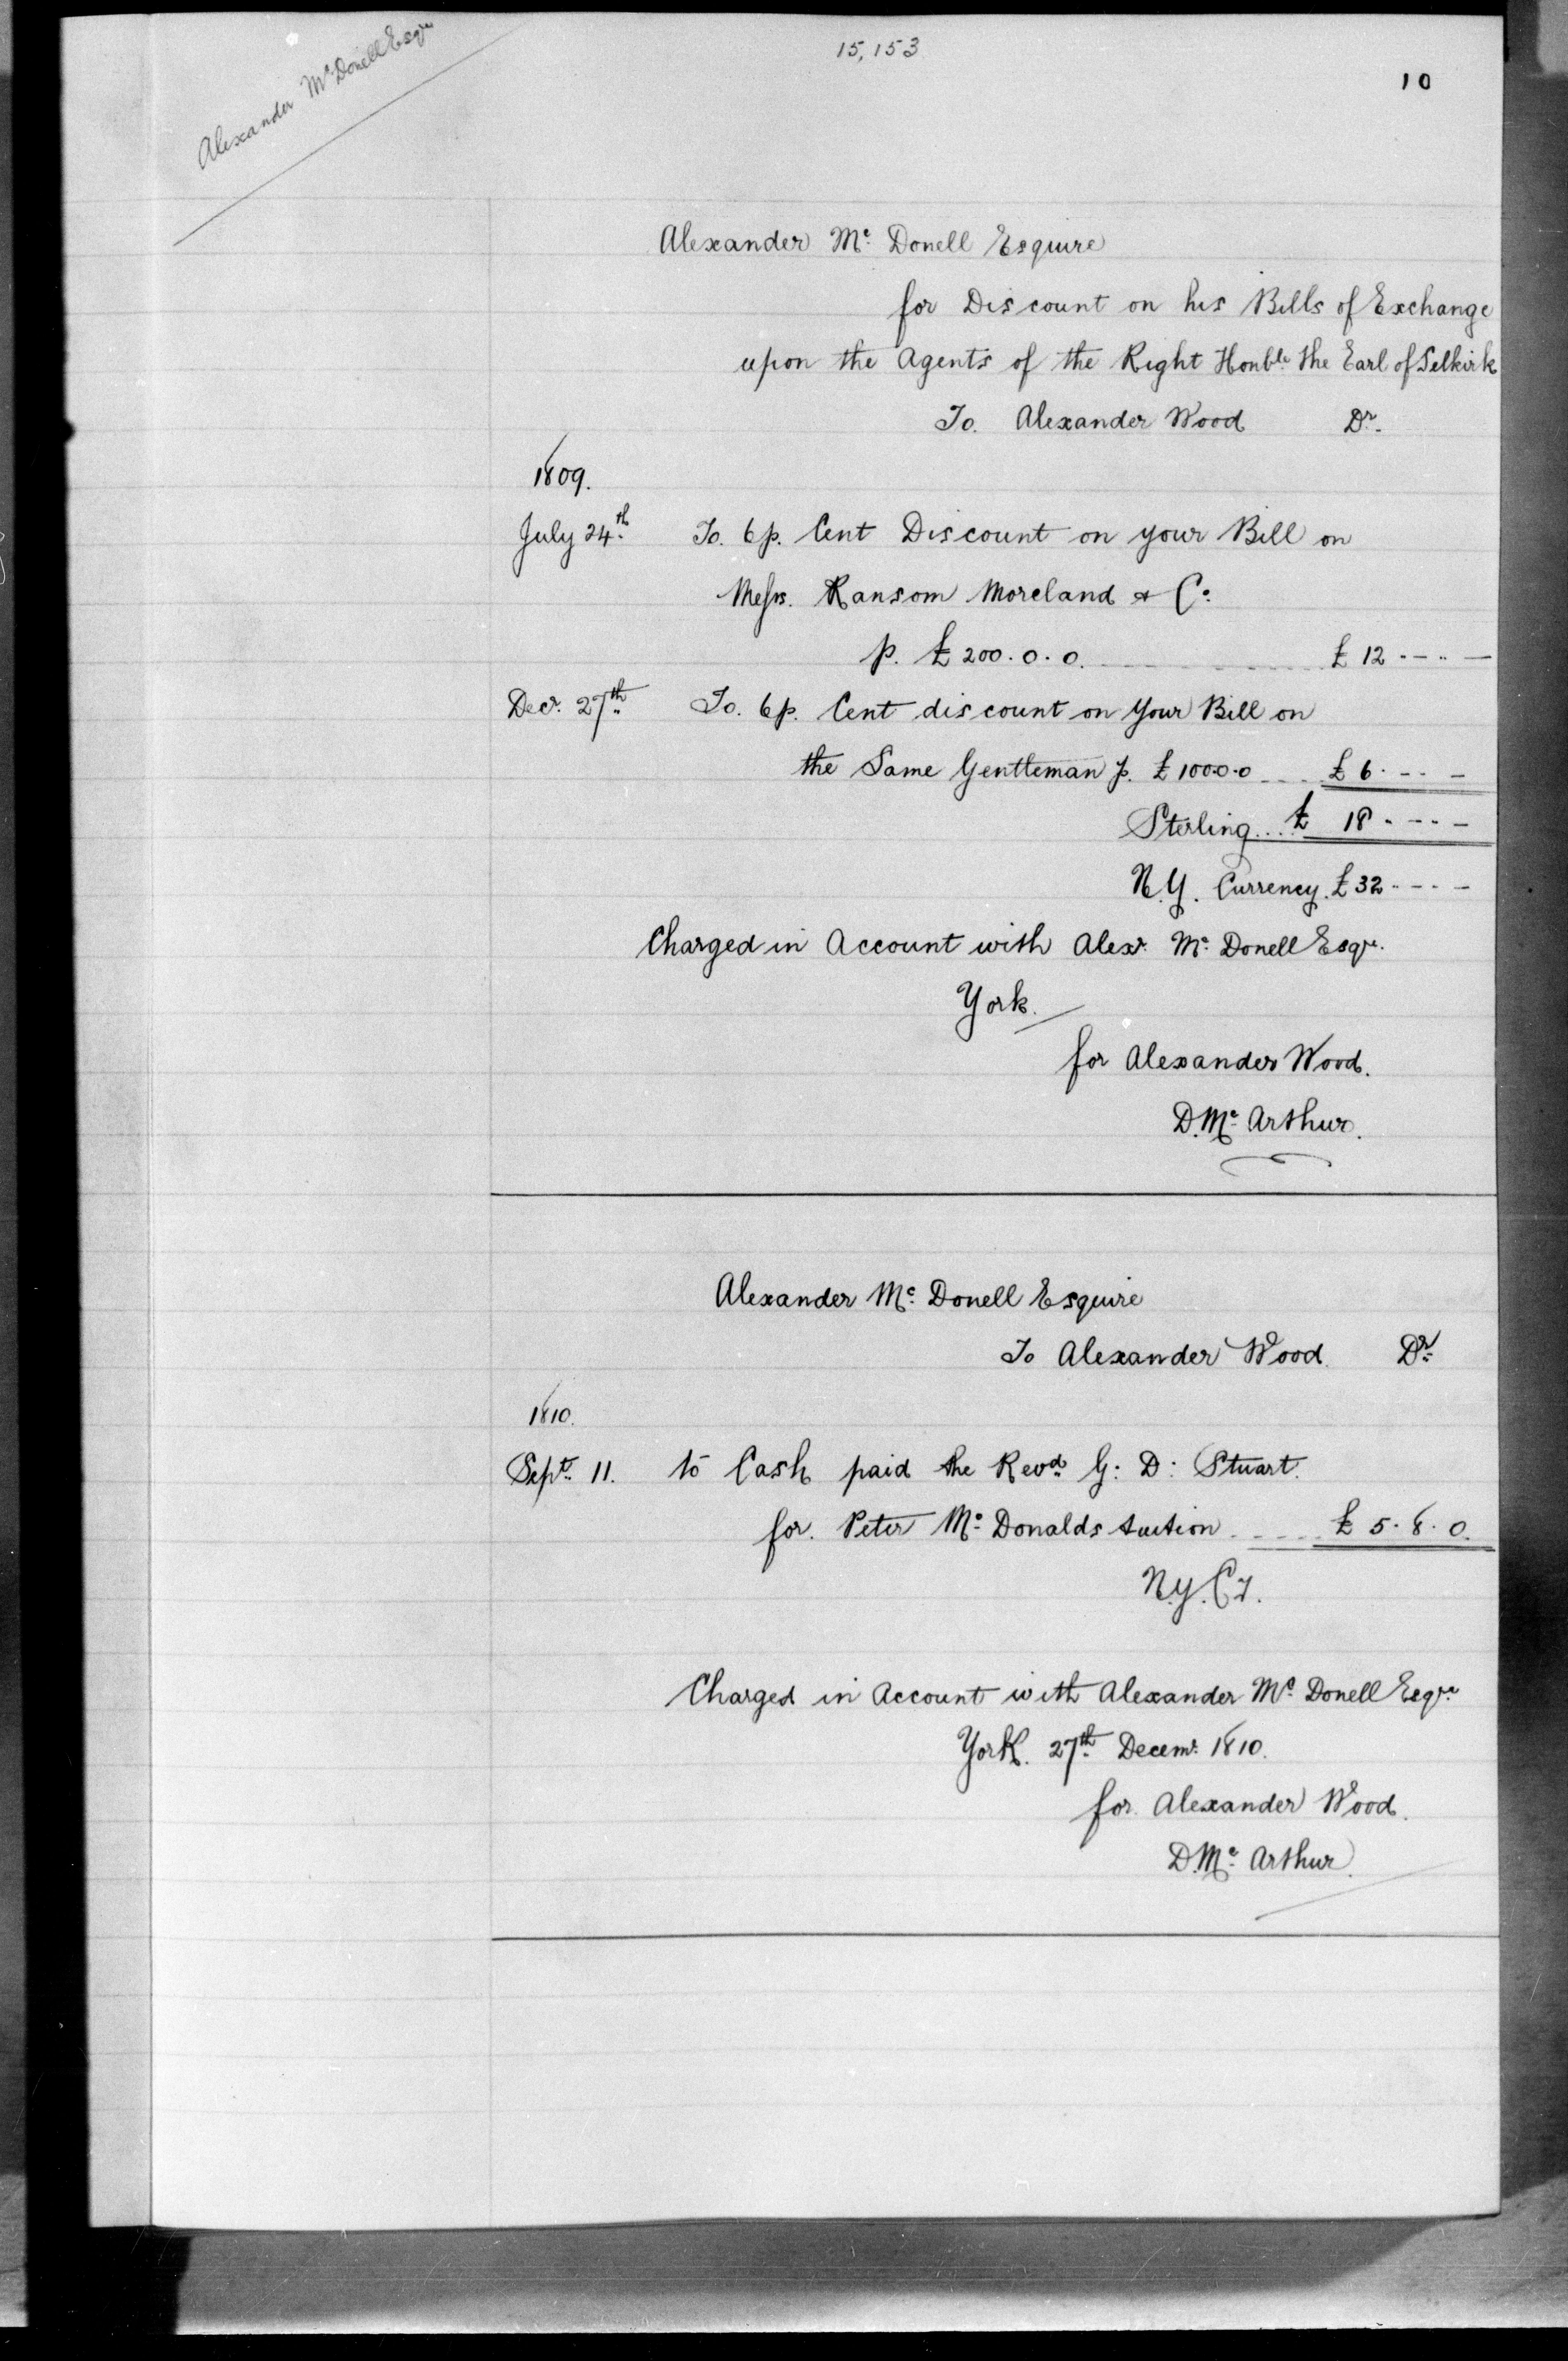 15,153
10
Alexander Mc Donell Esqre
Alexander Mc Donell Esquire
for Discount on his Bills of Exchange
upon the Agents of the Right Honble the Earl of Selkirk
To. Alexander Wood Dr.
1809.
July 24th To. 6 p. Cent Discount on your Bill on
Messrs. Ransom Moreland & Co.
p. £200.0.0. £12.-.-
Decr. 27th To. 6 p. Cent discount on Your Bill on
the Same Gentleman p. £100.0.0 £6.-.-
Sterling... £ 18.-.-
N.Y. Currency. £32.-.-
Charged in Account with Alexr. Mc Donell Esqr.
York.
for Alexander Wood.
D. Mc Arthur.
Alexander Mc Donell Esquire
To Alexander Wood. Dr.
1810.
Sept. 11. to Cash paid the Revd. G: D: Stuart.
for. Peter Mc Donalds tuition £5.8.0.
N.Y. Cy.
Charged in Account with Alexander Mc Donell Esqre
York. 27th Decemr. 1810.
for. Alexander Wood.
D. Mc Arthur.